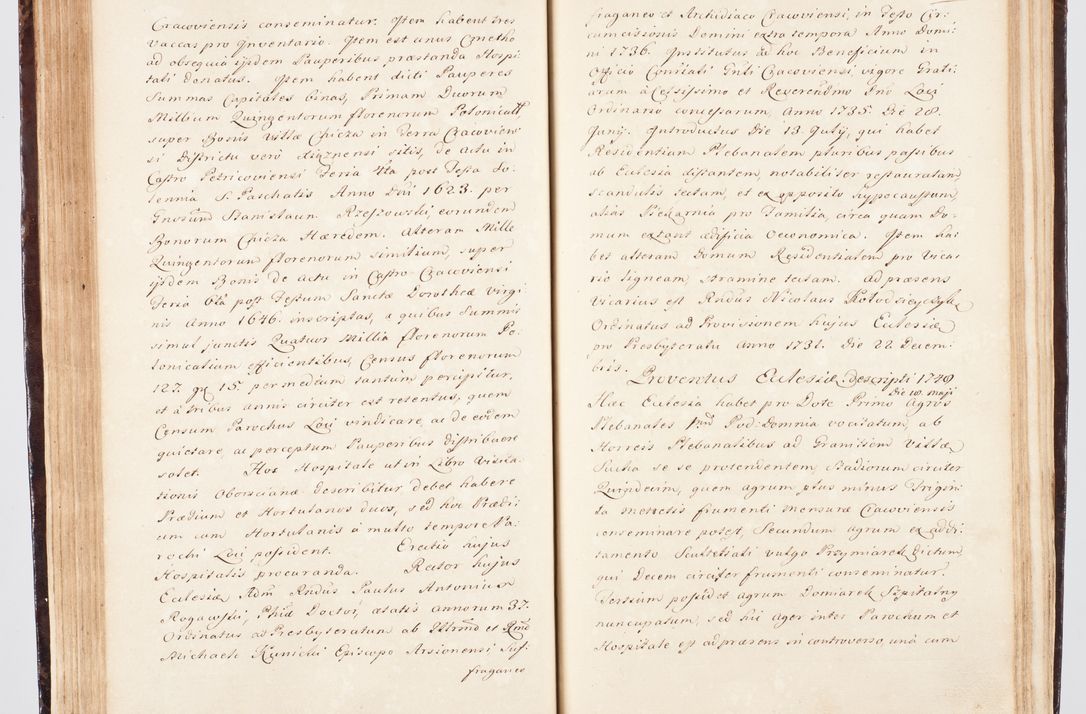 Cracoviensis conseminatur. Item habent tres
vaccas pro Inventario. Item est unus Cmetho
ad obsequia ijsdem Pauperibus præstanda Hospi-
tali donatus. Item habent dicti Pauperes
Summas Capitales binas, Primam Duorum
Millium Quingentorum florenorum Polonicall
super Bonis Villæ Chicza in Terra Cracovien
si Districtu verò Xiąznensi sitis, de actu in
Castro Petricoviensi Feria 4ta post Festa So-
lennia S. Paschatis Anno Dni 1623. per
Gnosum Stanislaum Rzeszowski, eorundem
Bonorum Chicza Hæredem. Alteram Mille
Quingentorum florenorum similium, super
ijsdem Bonis de actu in Castro Cracoviensi
Feria 6tâ post Festum Sanctæ Dorotheæ Virgi
nis Anno 1646. inscriptas, a quibus Summis
simul junctis Quatuor Millia florenorum Po-
lonicalium efficientibus, Census florenorum
127. gr 15 per medium tantùm percipitur,
et à tribus annis circiter est retentus, quem
Censum Parochus Loci vindicare, ac de eodem
quietare, ac perceptum Pauperibus distribuere
solet. Hoc Hospitale ut in Libro Visita-
tionis Oborscianæ describitur debet habere
Prædium et Hortulanos duos, sed hoc Prædi-
um cum Hortulanis à multo tempore Pa-
rochi Loci possident. Erectio hujus
Hospitalis procuranda. Rector hujus
Ecclesiæ Adm Rndus Paulus Antonius
Rogawski, Phiæ Doctor, ætatis annorum 37.
Ordinatus ad Presbyteratum ab Illmo et Rmo
Michaele Kunicki Episcopo Arsionensi Suf-
fraganeo
fraganeo et Archidiaco Cracoviensi, in Festo Cir-
cumcisionis Domini extra tempora Anno Domi-
ni 1736. Institutus ad hoc Beneficium in
Officio Consiali Gnli Cracoviensi vigore Grati-
arum à Celsissimo et Reverendmo Dno Loci
Ordinario concessarum, Anno 1735. Die 28.
Junij. Introductus Die 13. Julij, qui habet
Residentiam Plebanalem pluribus passibus
ab Ecclesia distantem, notabiliter restauratam
scandulis tectam, et ex opposito hypocaustum,
alias Piekarnia pro Familia, circa quam Do-
mum extant ædificia Oeconomica. Item ha-
bet alteram Domum Residentialem pro Vica-
rio ligneam, stramine tectam. Ad præsens
Vicarius est Rndus Nicolaus
Ordinatus ad Provisionem hujus Ecclesiæ
pro Presbyteratu Anno 1731. Die 22. Decem-
bris.
Proventus Ecclesiæ descripti 1748
Die 10. Maji
Hæc Ecclesia habet pro Dote Primo Agros
Plebanales Pod Domnia vocitatum, ab
Horreis Plebanalibus ad Granitiem Villæ
Sucha se se protendentem, Stadiorum circiter
Quindecim, quem agrum plus minus Trigin-
ta Metretis frumenti mensuræ Cracoviensis
conseminare potest, Secundum agrum ex addi-
tamento Scultetiali vulgo Przymiarek Dictum
qui Decem circiter frumenti conseminatur.
Tertium possidet agrum Domiarek Szpitalny
nuncupatum, sed hic ager inter Parochum et
Hospitale est ad præsens in controverso, unà cum